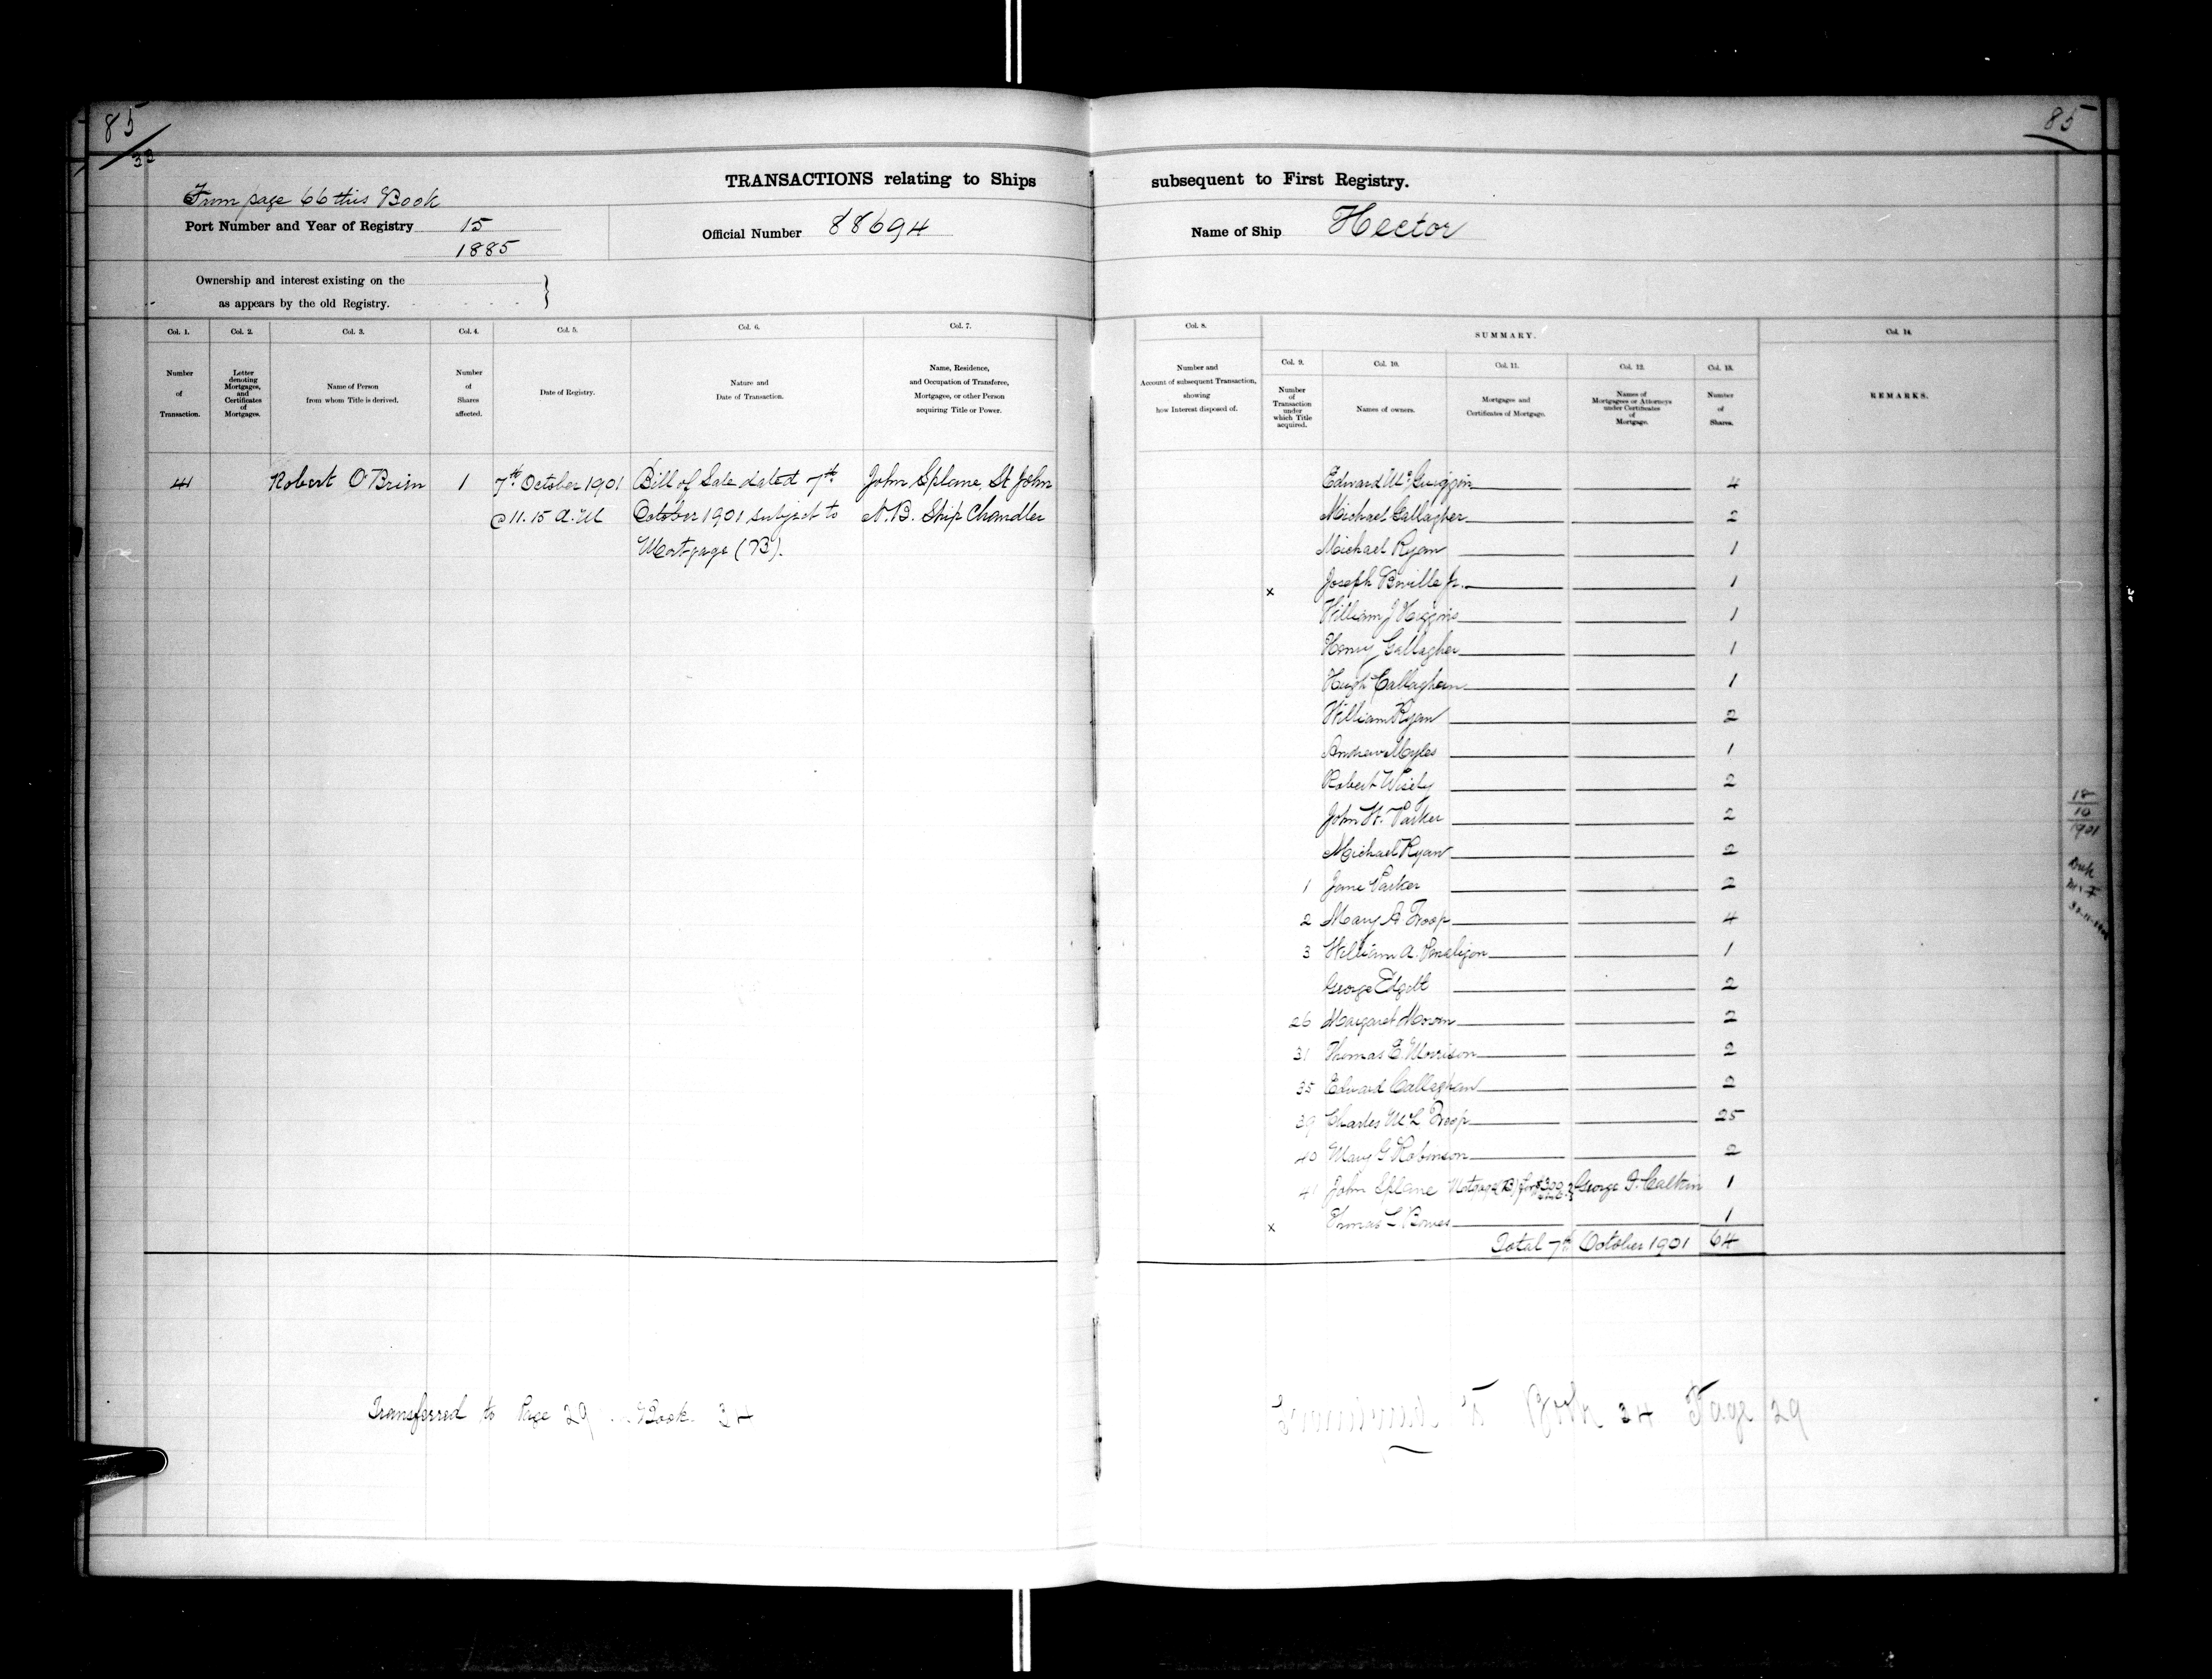 85
85
32
TRANSACTIONS relating to Ships subsequent to First Registry.
From page 66 this Book
Port Number and Year of Registry 15
1885
Official Number 88694
Name of Ship Hector
Ownership and interest existing on the
as appears by the old Registry.
Col. 1.
Number
of
Transaction.
Col. 2.
Letter
denoting
Mortgages,
and
Certificates
of
Mortgages.
Col. 3.
Name of Person
from whom Title is derived.
Col. 4.
Number
of
Shares
affected.
Col. 5.
Date of Registry.
Col. 6.
Nature and
Date of Transaction.
Col. 7.
Name, Residence,
and Occupation of Transferee,
Mortgagee, or other Person
acquiring Title or Power.
Col. 8.
Number and
Account of subsequent Transaction,
showing
how Interest disposed of.
SUMMARY.
Col. 9.
Number
of
Transaction
under
which Title
acquired.
Col. 10.
Names of owners.
Col. 11.
Mortgages and
Certificates of Mortgage.
Col. 12.
Names of
Mortgagees or Attorneys
under Certificates
of
Mortgage.
Col. 13.
Number
of
Shares.
Col. 14.
REMARKS.
41 Robert O'Brien 1 7th October 1901 Bill of Sale dated 7th John Splane, St John
@ 11.15 A.M October 1901 subject to N.B. Ship Chandler
Mortgage (B).
Edward McGuiggin 4
Michael Gallagher 2
Michael Ryan 1
x Joseph Jr. 1
William J Higgins 1
Henry Gallagher 1
Hugh Callaghan 1
William Ryan 2
Andrew Myles 1
Robert Wisely 2
John W. Parker 2
Michael Ryan 2
1 Jane Parker 2
2 Mary A Troop 4
3 William A. Penaligon 1
George Edgett 2
26 Margaret 2
31 Thomas E. Morrison 2
35 Edward Callaghan 2
39 Charles McL Troop 25
40 Mary G Robinson 2
41 John Splane Mortgage (B) for $300 George F. Calkin 1
x Thomas L Bowes 1
Total 7th October 1901 64
18
10
1901
Transferred to Page 29 Book 34
to Book 34 Page 29